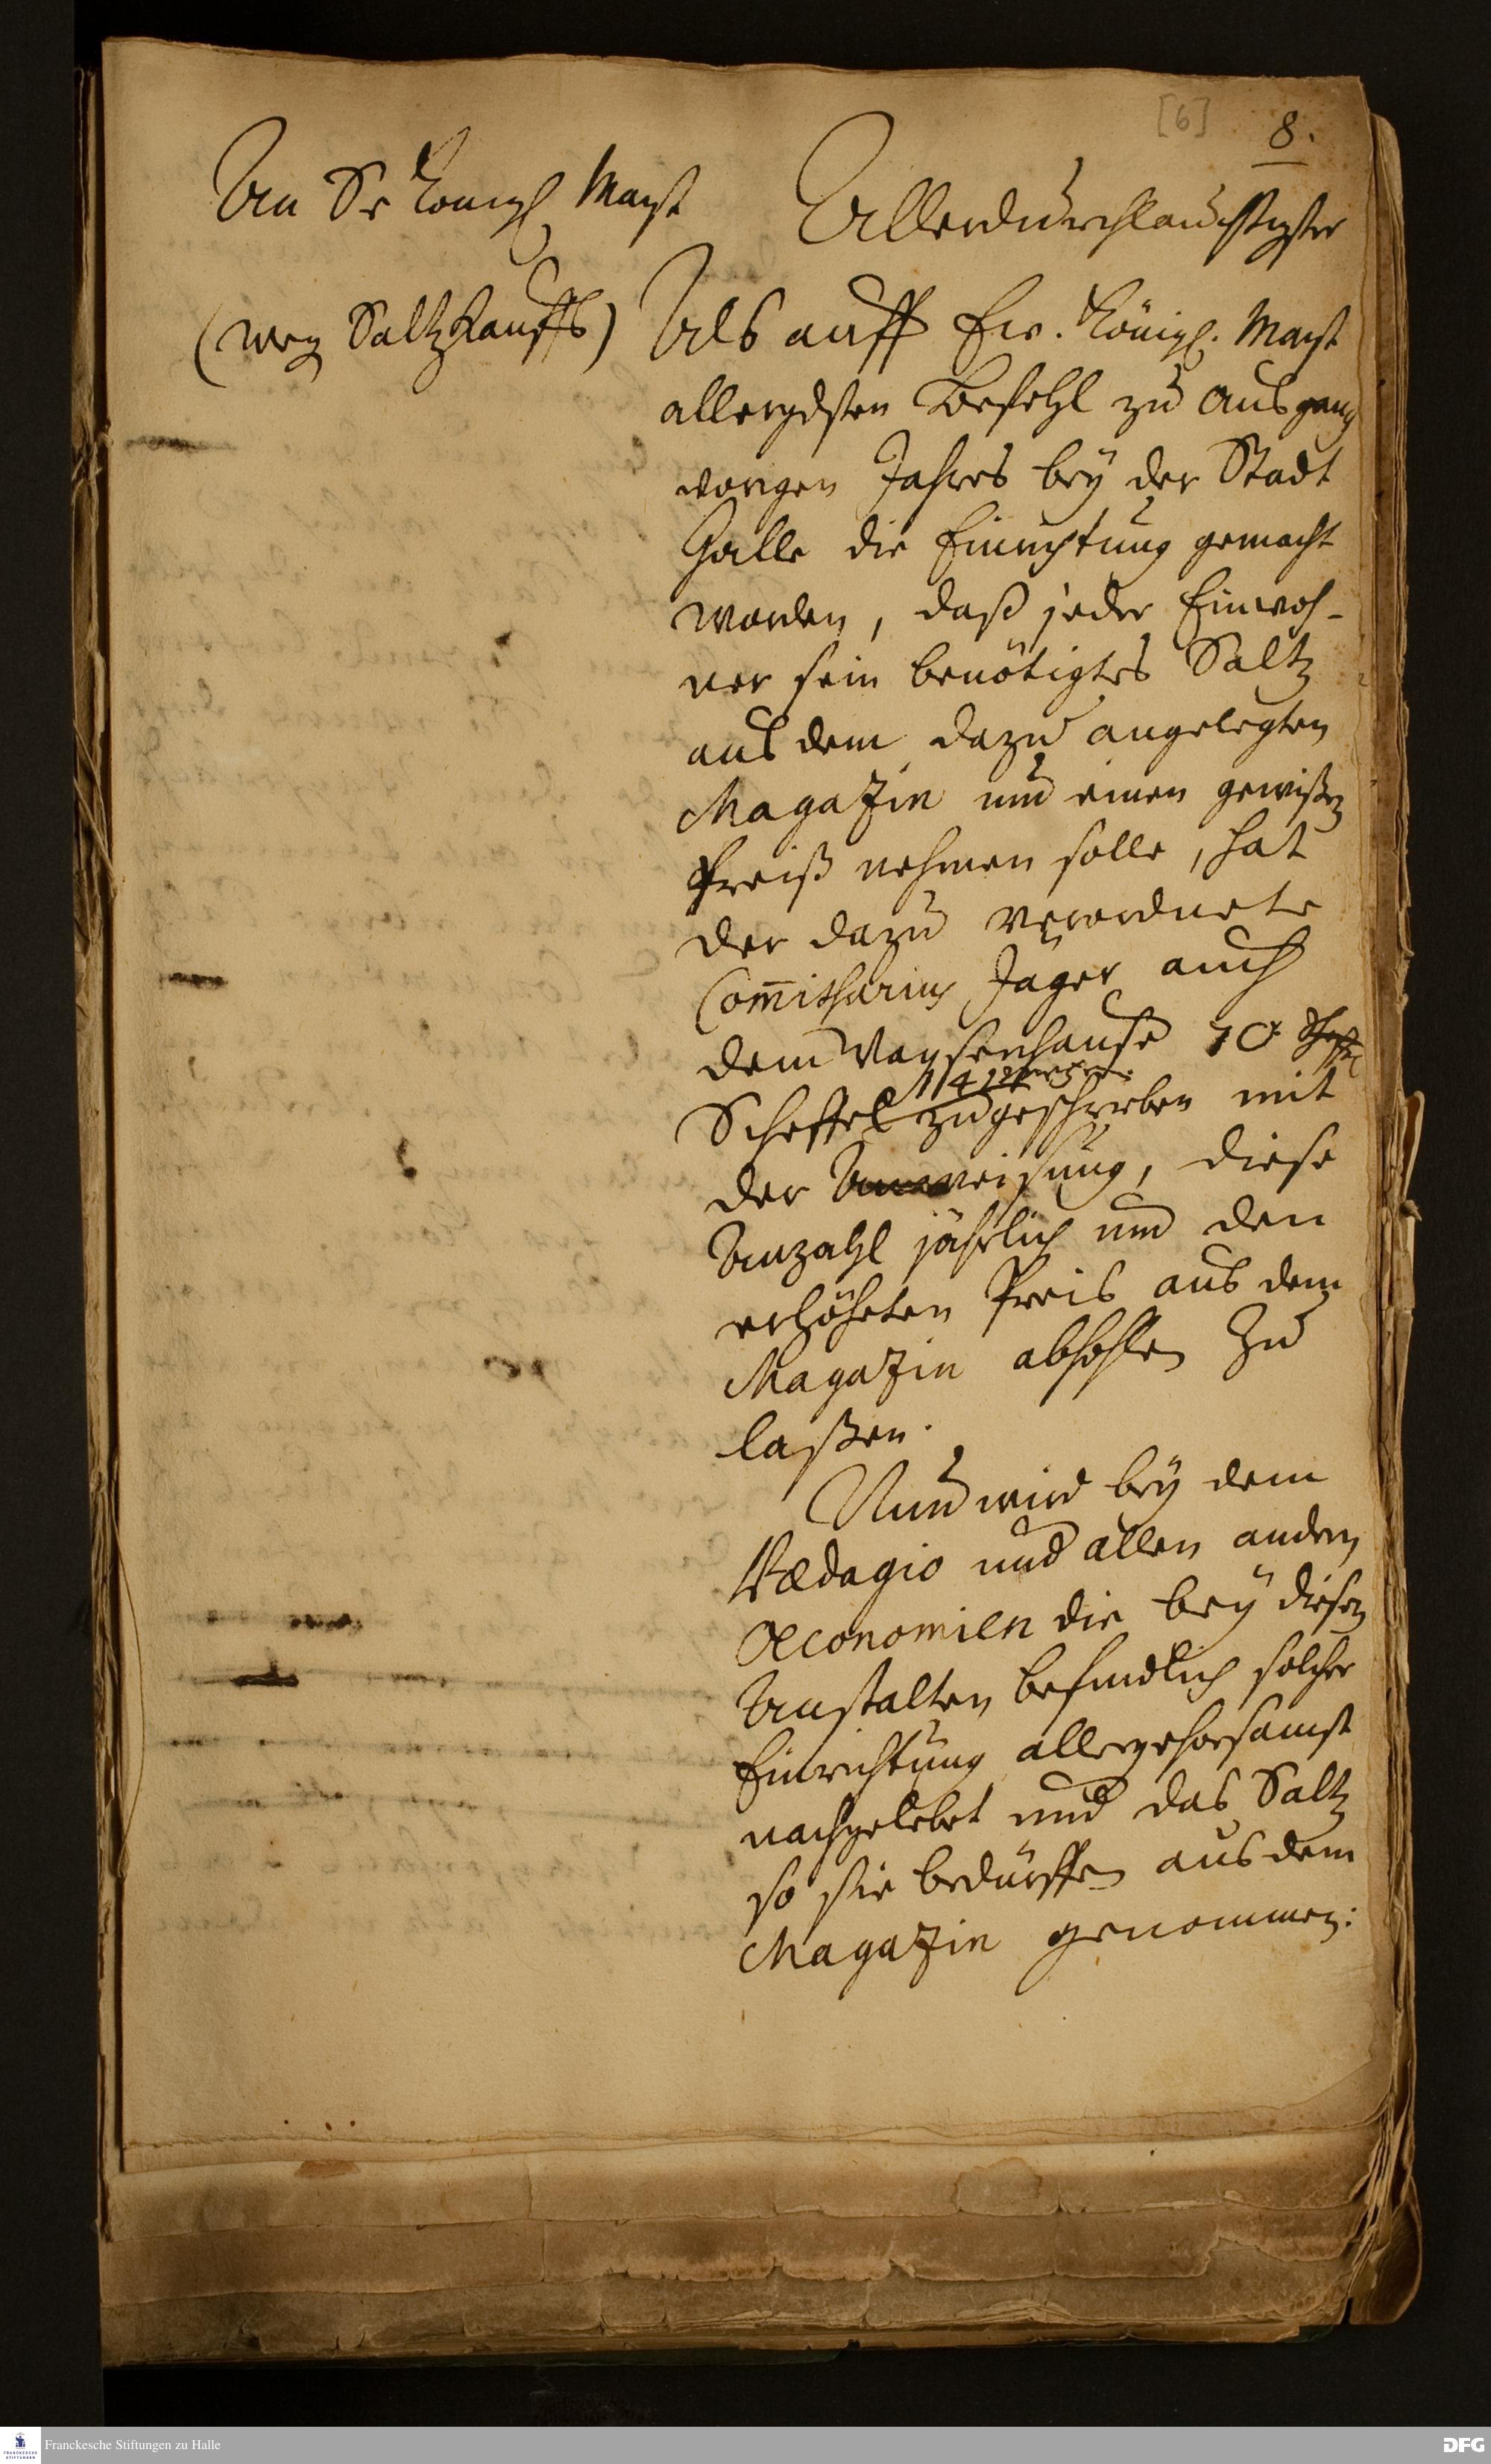 [6] 8.
An Sr Königl Mayst
(weg Saltzkauffs)
Allerdurchlauchtigster
Als auff Ew. Königl. Mayst
allergdsten Befehl zu Ausgang
vorigen Jahres bey der Stadt
Halle die Einrichtung gemacht
worden, daß jeder Einwoh-
ner sein benötigtes Saltz
aus dem dazu angelegten
Magazin um einen gewißen
Preiß nehmen solle, hat
der dazu verordnete
Com̅issarius Jäger auch
dem Waysenhause 70
Scheffel zugeschrieben mit
der Anweisung, diese
Anzahl jährlich um den
erhöheten Preis aus dem
Magazin abhohlen zu
laßen.
Nun wird bey dem
Pædagio und allen andern
Œconomien die bey diesen
Anstalten befindlich solcher
Einrichtung allergehorsamst
nachgelebet und das Saltz
so sie bedürffen aus dem
Magazin genommen:
Franckesche Stiftungen zu Halle
DFG